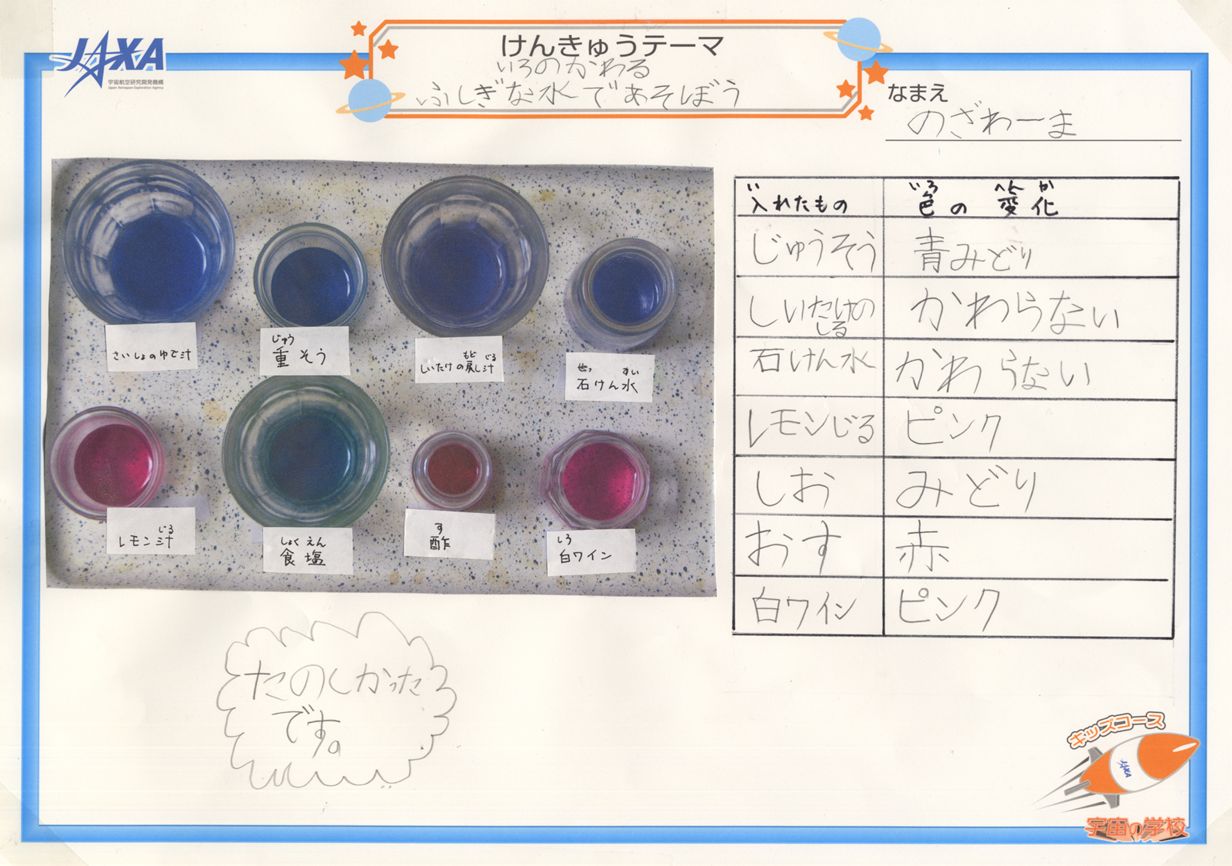 JAXA
宇宙航空研究開発機構
Japan Aerospace Exploration Agency
けんきゅうテーマ
いろのかわる
ふしぎな水であそぼう
なまえ
のざわーま
さいしょのゆで汁
じゅう
重そう
もど じる
しいたけの戻し汁
せっ すい
石けん水
じる
レモン汁
しょくえん
食塩
す
酢
しろ
白ワイン
い
入れたもの
いろ へん か
色の変化
じゅうそう 青みどり
しいたけの
しる
かわらない
石けん水 かわらない
レモンじる ピンク
しお みどり
おす 赤
白ワイン ピンク
たのしかった
です。
キッズコース
JAXA
宇宙の学校